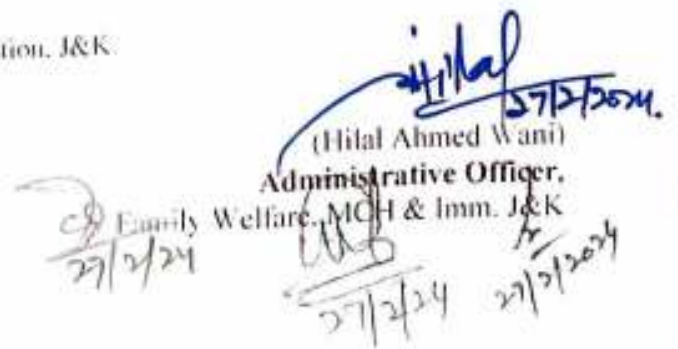 tion, J&K.
Hilal
27/2/2024.
(Hilal Ahmed Wani)
Administrative Officer,
Family Welfare, MCH & Imm. J&K
27/2/24
27/2/24
27/2/2024